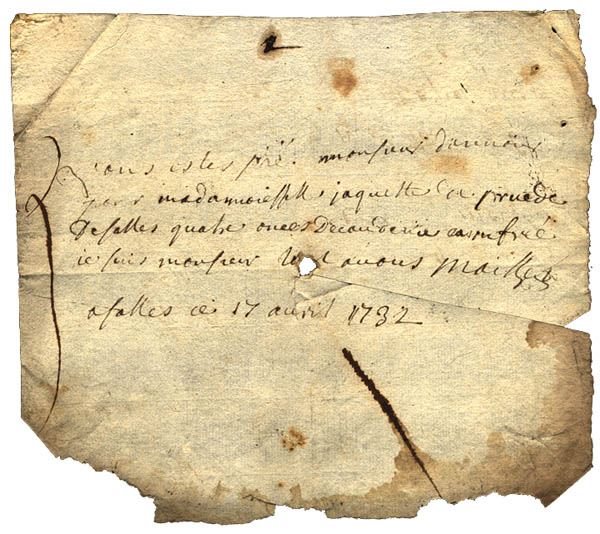 vous estes prié monsieur d'anvoier
pour madamoiselle jaquette la pruede
desalles quatre onces
je suis monsieur tout avous Maillet
asalles ce 17 avril 1732